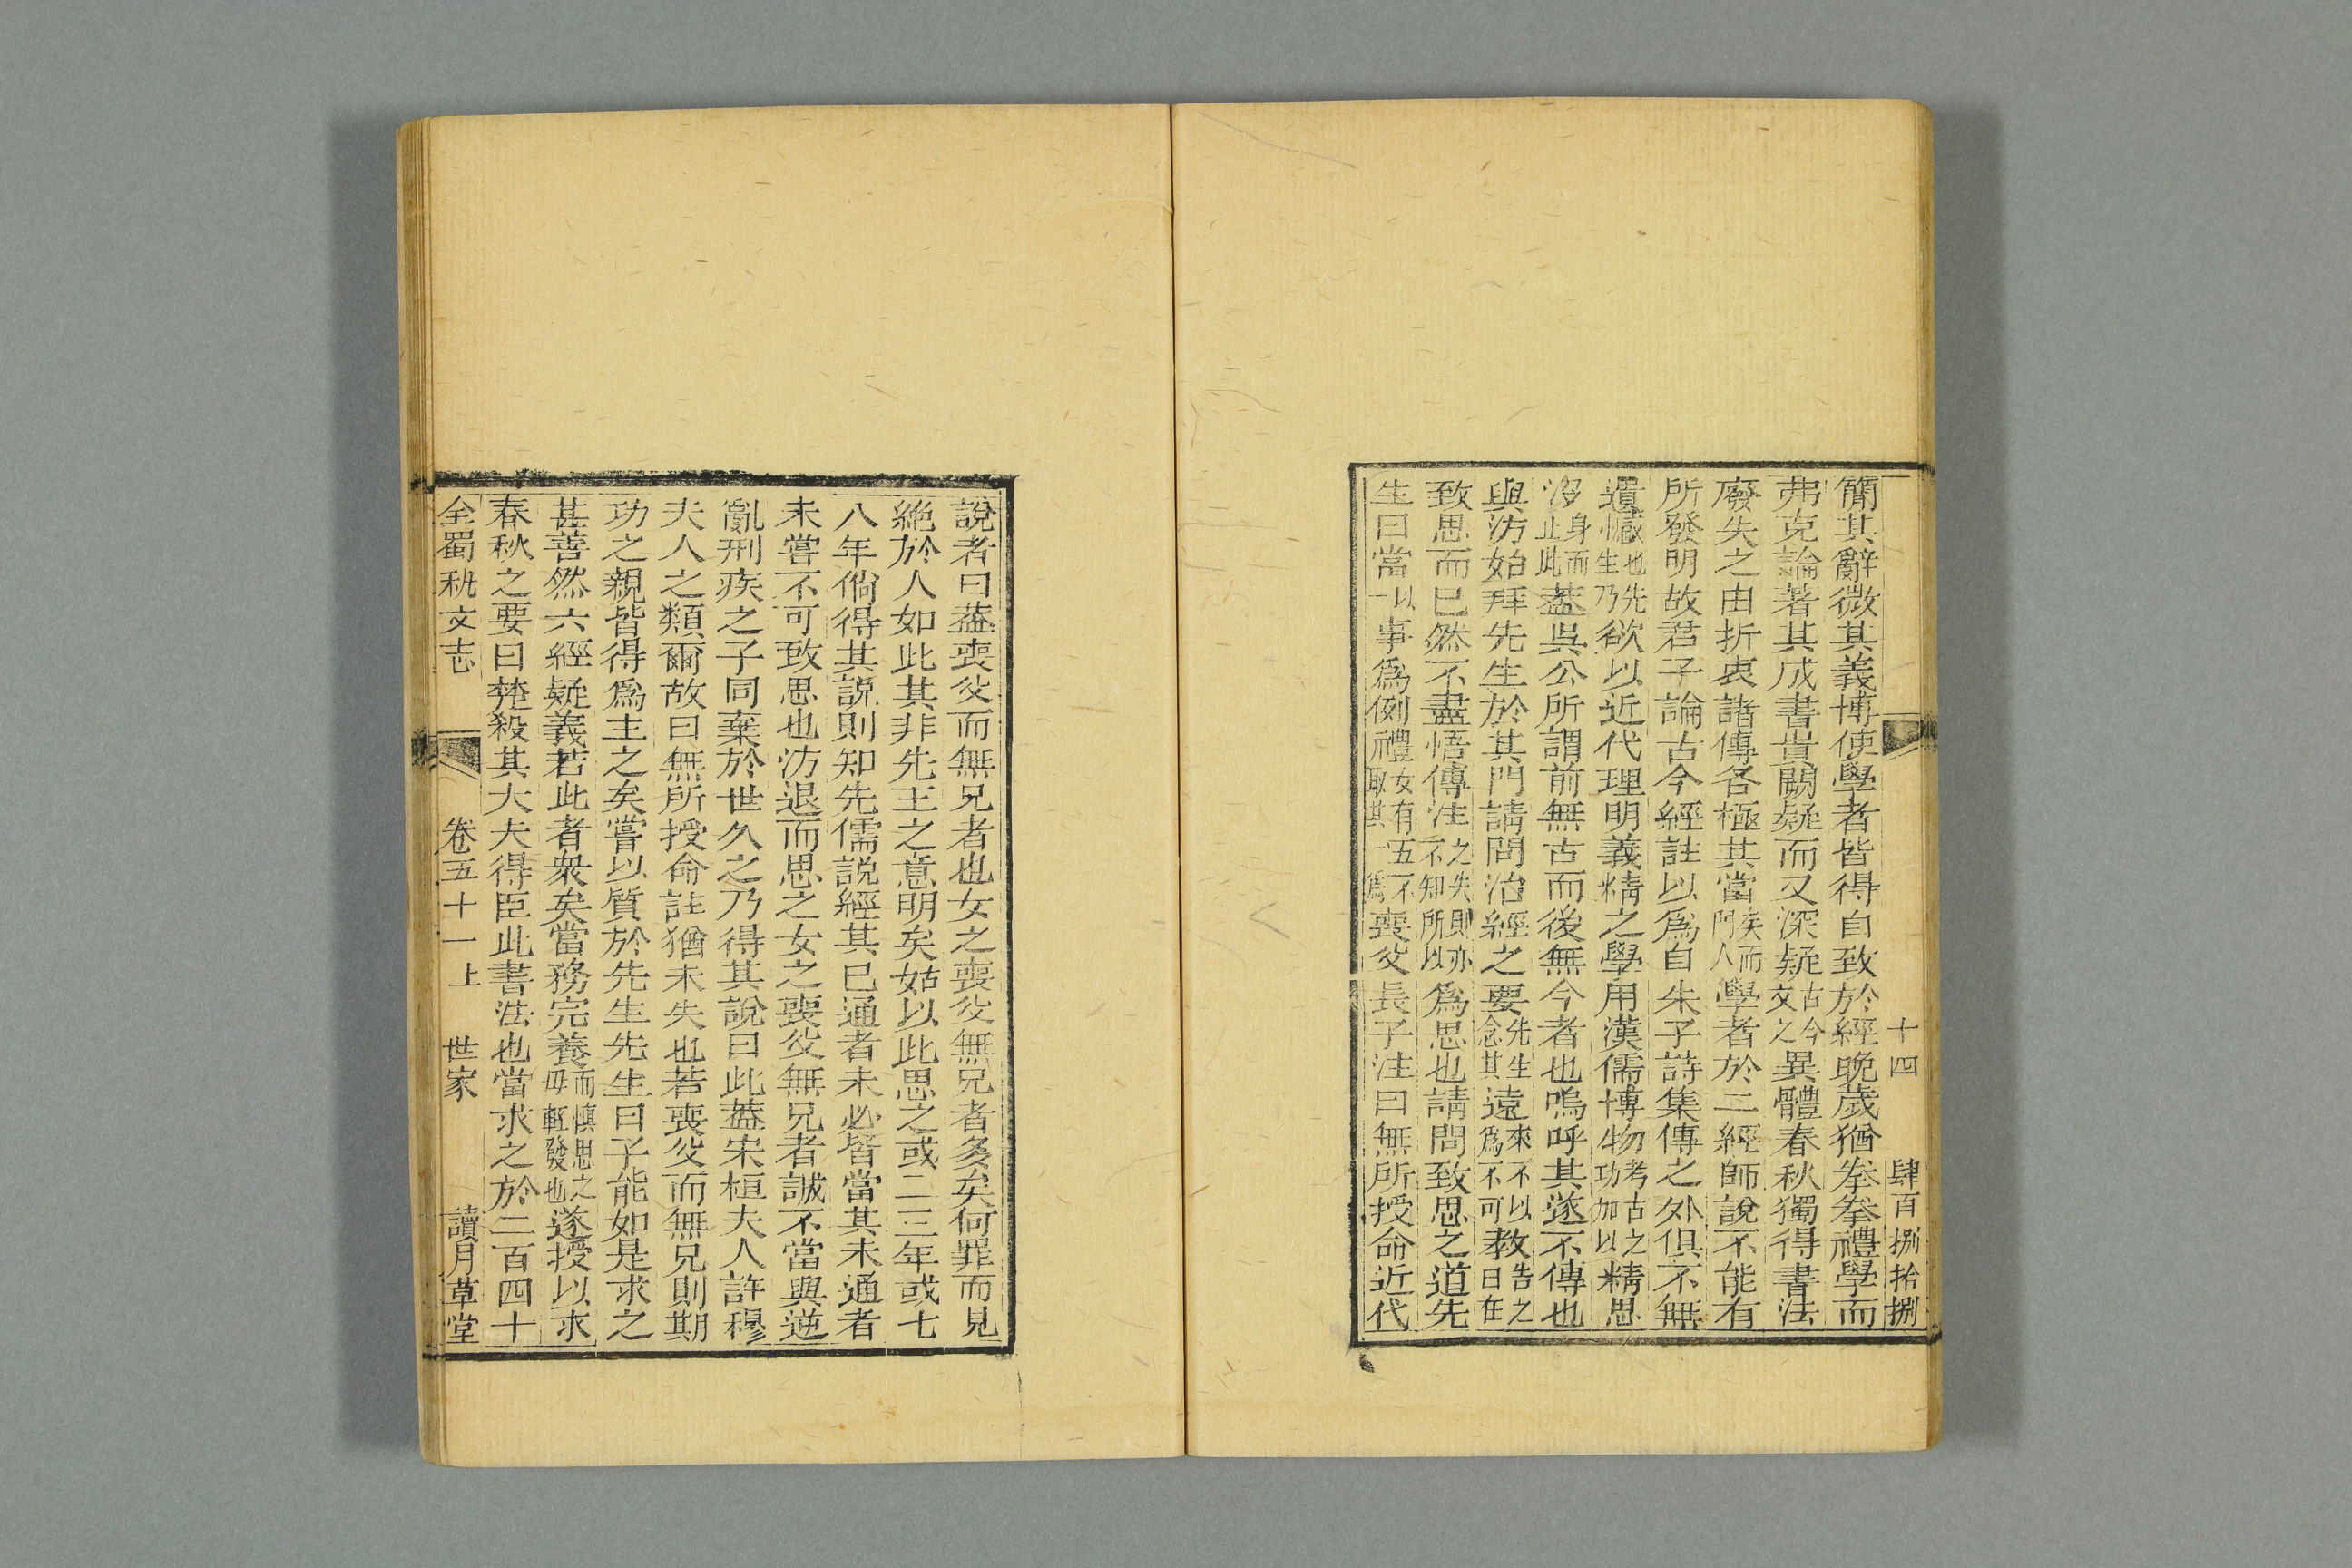 十四　肆百捌拾捌
簡其辭微其義博使學者皆得自致於經晚歲猶拳拳禮學而
弗克論著其成書貴闕疑而又深疑古今文之異體春秋獨得書法
廢失之由折衷諸傳各極其當矣而門人學者於二經師說不能有
所發明故君子論古今經註以爲自朱子詩集傳之外俱不無
遺憾也先生乃欲以近代理明義精之學用漢儒博物考古之功加以精思
沒身而止此蓋吳公所謂前無古而後無今者也嗚呼其遂不傳也
與汸始拜先生於其門請問治經之要先生念其遠來不以爲不可教告之曰在
致思而已然不盡悟傳注之失則亦不知所以爲思也請問致思之道先
生曰當以一事爲例禮女有五不取其一爲喪父長子注曰無所授命近代
說者曰蓋喪父而無兄者也女之喪父無兄者多矣何罪而見
絕於人如此其非先王之意明矣姑以此思之或二三年或七
八年倘得其說則知先儒說經其已通者未必皆當其未通者
未嘗不可致思也汸退而思之女之喪父無兄者誠不當與逆
亂刑疾之子同棄於世久之乃得其說曰此蓋宋桓夫人許穆
夫人之類爾故曰無所授命註猶未失也若喪父而無兄則期
功之親皆得爲主之矣嘗以質於先生先生曰子能如是求之
甚善然六經疑義若此者衆矣當務完養而愼思之毋輕發也遂授以求
春秋之要曰楚殺其大夫得臣此書法也當求之於二百四十
全蜀秇文志　卷五十一上　世家　讀月草堂